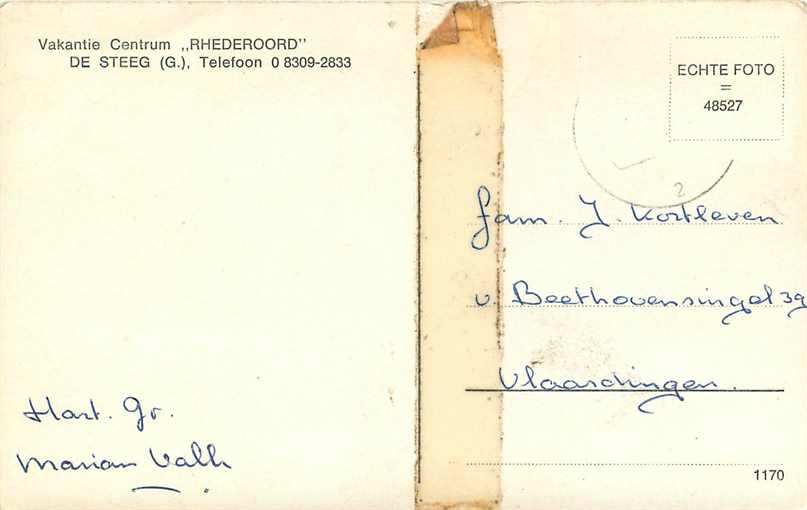 Vakantie Centrum „RHEDEROORD"
DE STEEG (G.), Telefoon 0 8309-2833
Hart. Gr.
Marian Valk
ECHTE FOTO
=
48527
2
fam. J. Kortleven
v. Beethovensingel 39
Vlaardingen.
1170